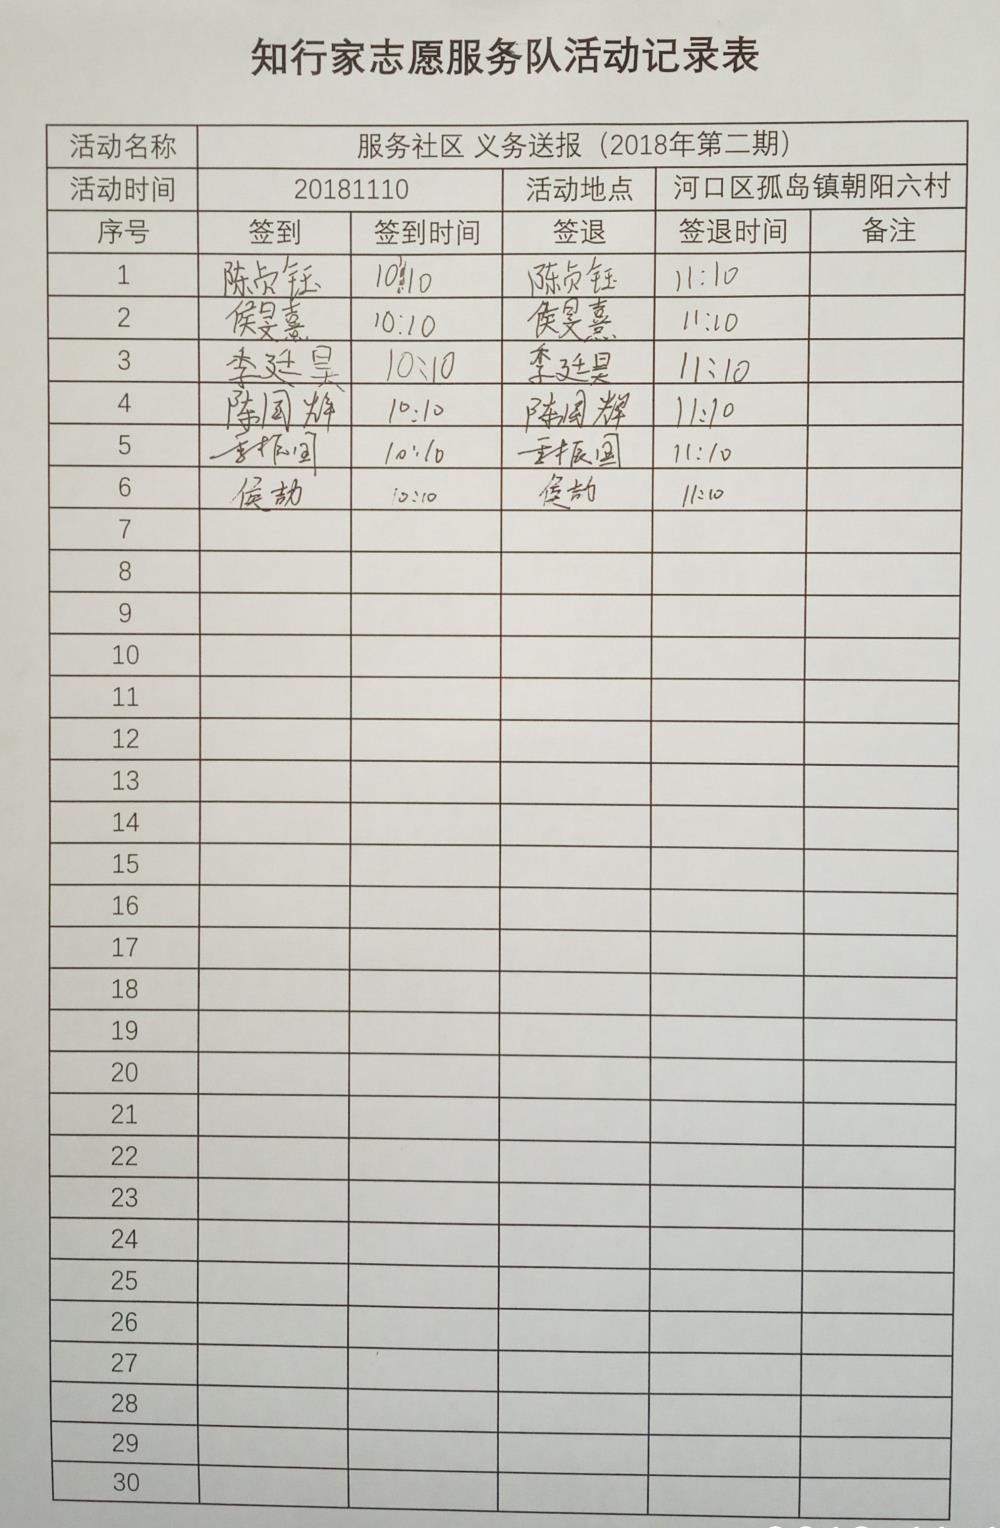 知行家志愿服务队活动记录表
活动名称 服务社区 义务送报（2018年第二期）
活动时间 20181110 活动地点 河口区孤岛镇朝阳六村
序号 签到 签到时间 签退 签退时间 备注
1 陈贞钰 10:10 陈贞钰 11:10
2 侯旻熹 10:10 侯旻熹 11:10
3 李廷昊 10:10 李廷昊 11:10
4 陈国辉 10:10 陈国辉 11:10
5 振国 10:10 振国 11:10
6 侯劼 10:10 侯劼 11:10
7
8
9
10
11
12
13
14
15
16
17
18
19
20
21
22
23
24
25
26
27
28
29
30